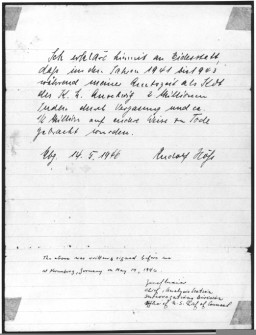 Ich erkläre hiermit an Eidesstatt,
daß in den Jahren 1941 bis 1943
während meiner Amtszeit als Kdt
des K. L. Auschwitz 2 Millionen
Juden durch Vergasung und ca.
1/2 Million auf andere Weise zu Tode
gebracht wurden.
14. 5. 1946 Rudolf Höß
The above was written & signed before me
at Nurnberg, Germany on May 14, 1946
Chief, Analysis Section
Interrogation Division
Office of U.S. Chief of Counsel